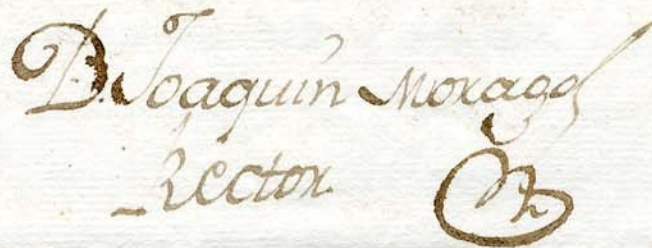 D. Joaquin Moragas
Rector